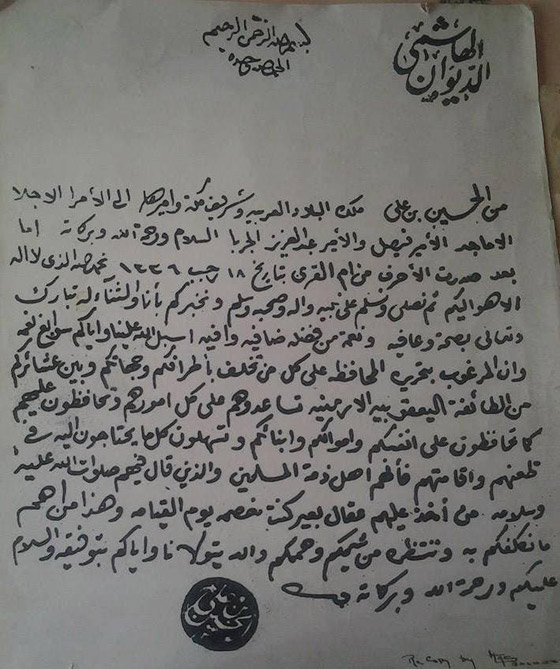 بسم الله الرحمن الرحيم
الحمد لله وحده
الديوان الهاشمي
من الحسين بن علي ملك البلاد العربيه وشريف مكة واميرها الى الأمرا الاجلا
الاماجد الأمير فيصل والأمير عبد العزيز الجربا السلام ورحمة الله وبركاته اما
بعد صدرت الأحرف من ام القرى بتاريخ ١٨ رجب ١٣٣٦ نحمد الله الذي لا اله
الا هو اليكم ثم نصلي ونسلم على نبيه واله وصحبه وسلم ونخبركم بأنا والثناء له تبارك
وتعالى بصحة وعافيه ونعمة من فضله ضافيه وافيه اسبل الله علينا واياكم سوابغ نعمه
وان المرغوب بتحريره المحافظه على كل من تخلف بأطرافكم وجهاتكم وبين عشائركم
من الطائفة اليعقوبيه الارمنيه تساعدوهم على كل امورهم وتحافظون عليهم
كما تحافظون على انفسكم واموالكم وابنائكم وتسهلون كل ما يحتاجون اليه في
ظعنهم واقامتهم فأنهم اهل ذمة المسلمين والذين قال فيهم صلوات الله عليه
وسلامه من أخذ عليهم عقال بعير كنت خصمه يوم القيامه وهذا من اهم
ما نكلفكم به وننتظره من شيمكم وهممكم والله يتولانا واياكم بتوفيقه والسلام
عليكم ورحمة الله وبركاته
الحسين بن علي
Re Copy by